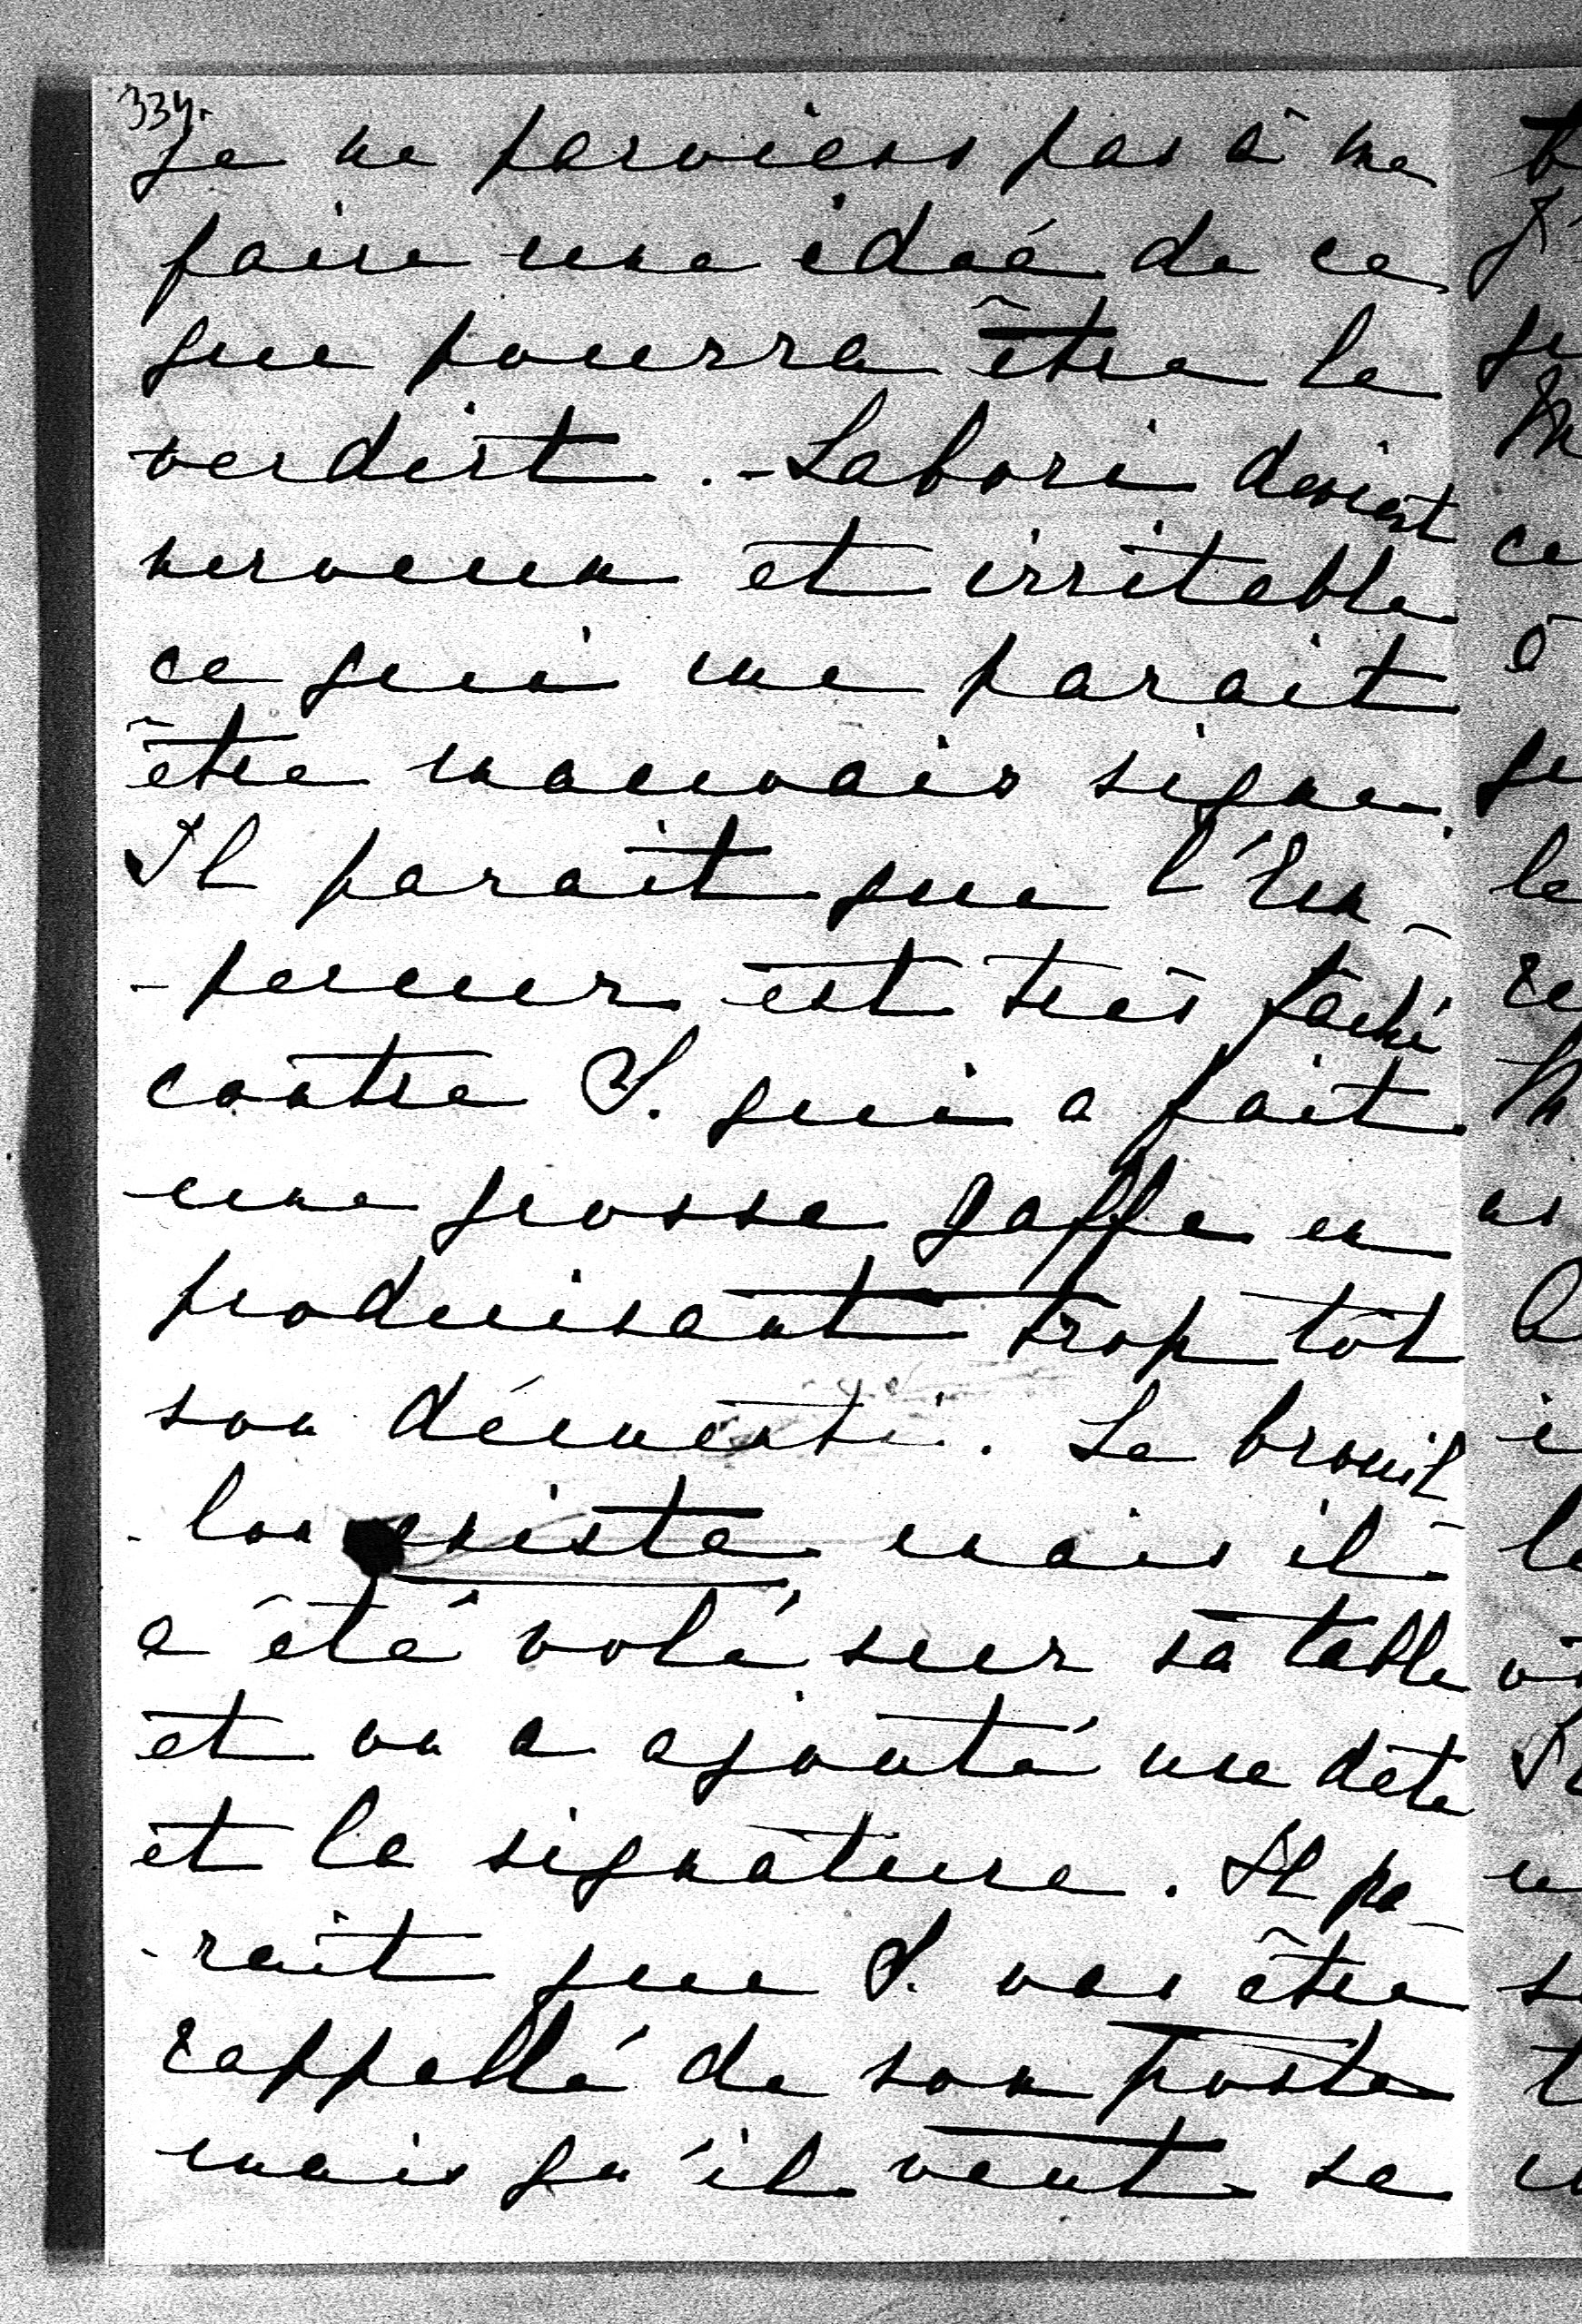 334.
Je ne parviens pas à me
faire une ideé de ce
que pourra être le
verdict. - Labori devient
nerveux et irritable
ce qui me parait
être mauvais signe.
Il parait que l'Em-
-pereur est très faché
contre S. qui a fait
une grosse gaffe en
produisant trop tôt
son démenti. Le brouil-
-lon existe mais il
a été volé sur sa table
et on a ajouté une date
et la signature. Il pa-
-rait que S. vas être
rappellé de son poste
mais qu'il veut se